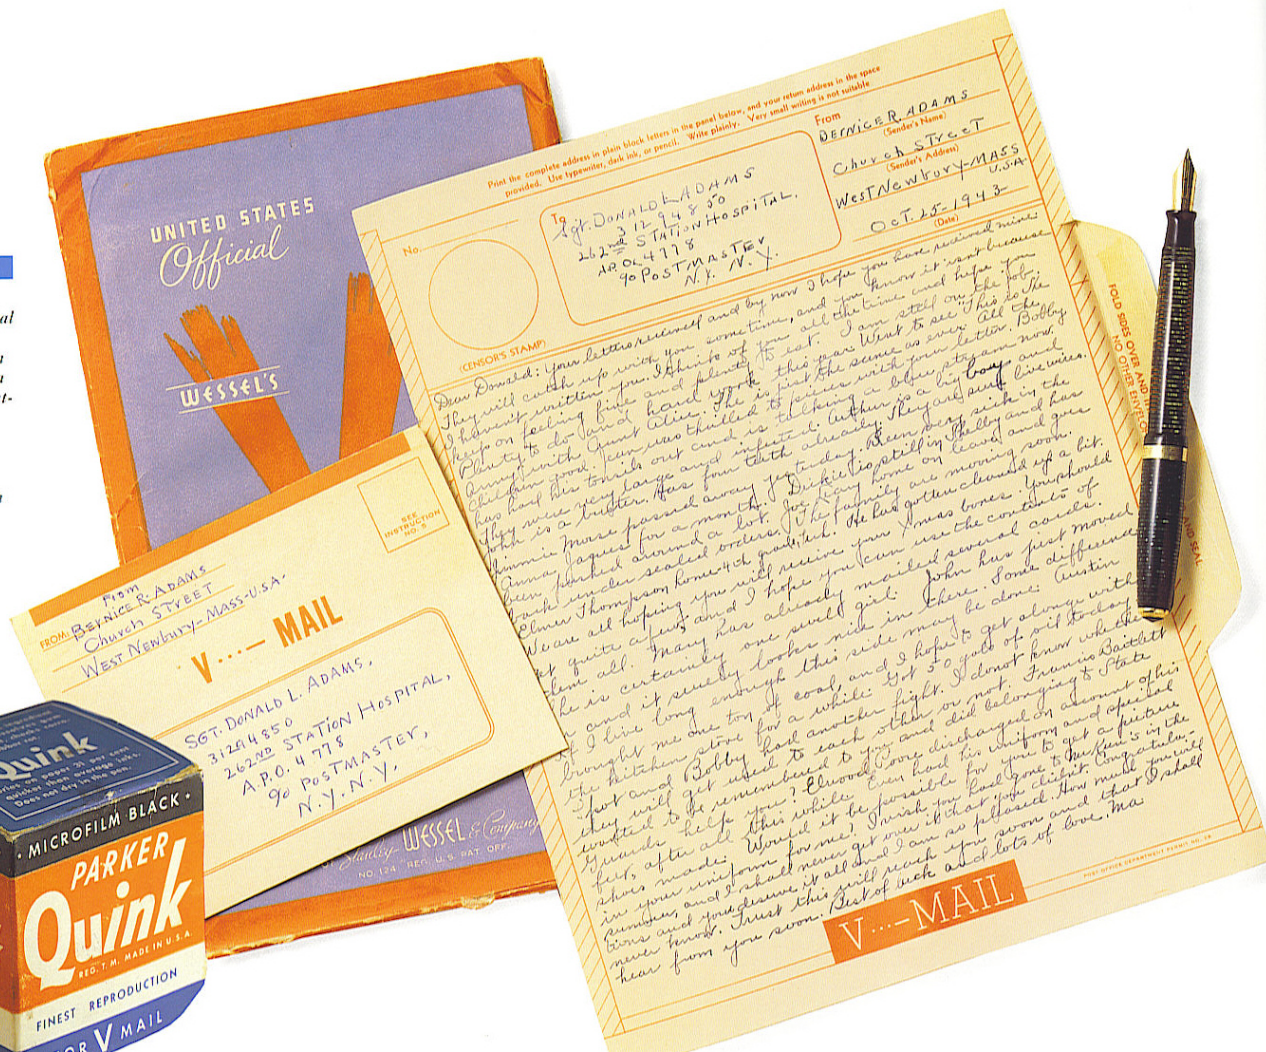 UNITED STATES
Official
WESSEL'S
Stanley WESSEL & Company
NO. 124 REG. U.S. PAT. OFF.
SEE
INSTRUCTION
NO. 5
From
FROM: BERNICE R. ADAMS
Church STREET
WEST NEWBURY-MASS-U.S.A.
V···— MAIL
SGT. DONALD L. ADAMS,
31294850
262ND STATION HOSPITAL,
A.P.O. 4778
% POSTMASTER,
N.Y. N.Y.
Quink
quicker than average inks.
Does not dry in the pen.
• MICROFILM BLACK •
PARKER
Quink
REG. T.M. MADE IN U.S.A.
FINEST REPRODUCTION
FOR V MAIL
Print the complete address in plain black letters in the panel below, and your return address in the space
provided. Use typewriter, dark ink, or pencil. Write plainly. Very small writing is not suitable
No.
(CENSOR'S STAMP)
To
Sgt. DONALD L ADAMS
31294850
262nd STATION HOSPITAL,
A.P.O. 4778
% POSTMASTER
N.Y. N.Y.
From
BERNICE R. ADAMS
(Sender's Name)
Church STreeT
(Sender's Address)
West Newbury-MASS
U.S.A
OcT. 25-1943-
(Date)
Dear Donald: Your letters received and by now I hope you have received mine
They will catch up with you sometime, and you know it isn't because
I haven't written you. I think of you all the time and hope you
keep on feeling fine and plenty to eat. I am still on the job.
Plenty to do and hard work this year. Went to see "This is the
Army" with Aunt Alice. She is just the same as ever. All the
children good. Jean was thrilled to pieces with your letter. Bobby
has had his tonsils out and is talking a blue steam now.
They were very large and infected. Arthur is a big boy and
John is a buster. Has four teeth already. They are sure live wires.
Jimmie Morse passed away yesterday. Been very sick in the
Anna Jaques for a month. Dickie is still in Shelby and has
been pushed around a lot. Joe Kray home on leave and goes
back under sealed orders. The family are moving soon.
Elmer Thompson home-4th grade, tch. He has gotten cleaned up a bit.
We are all hoping you will receive your Xmas boxes. You should
get quite a few, and I hope you can use the contents of
them all. Mary has already mailed several cards.
She is certainly one swell girl. John has just moved
and it surely looks nice in there. Some difference
If I live long enough this side may be done. Austin
brought me one ton of coal, and I hope to get along with
the kitchen stove for a while. Got 50 gals of oil today.
Spot and Bobby had another fight. I do not know whether
they will get used to each other or not. Francis Bartlett
wanted to be remembered to you and did belonging to State
Guards help you? Elwood Poore discharged on account of his
feet, after all this while. Even had his uniform and special
shoes made. Would it be possible for you to get a picture
in your uniform for me? I wish you had gone to in the
summer, and I shall never get over it that you didn't. Congratula-
tions and you deserve it all and I am so pleased. How much you will
never know. Trust this will reach you soon and that I shall
hear from you soon. Best of luck and lots of love. Ma
V···—MAIL
POST OFFICE DEPARTMENT PERMIT NO.
FOLD SIDES OVER AND
NO OTHER ENVELO
AND SEAL